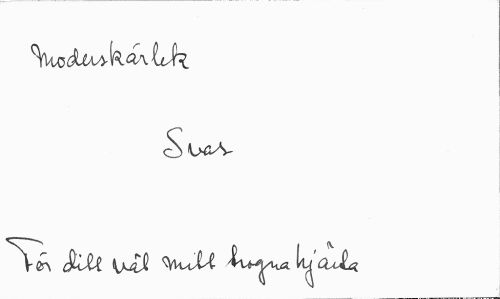 Moderskärlek
Svas
För ditt väl mitt trogna hjärta